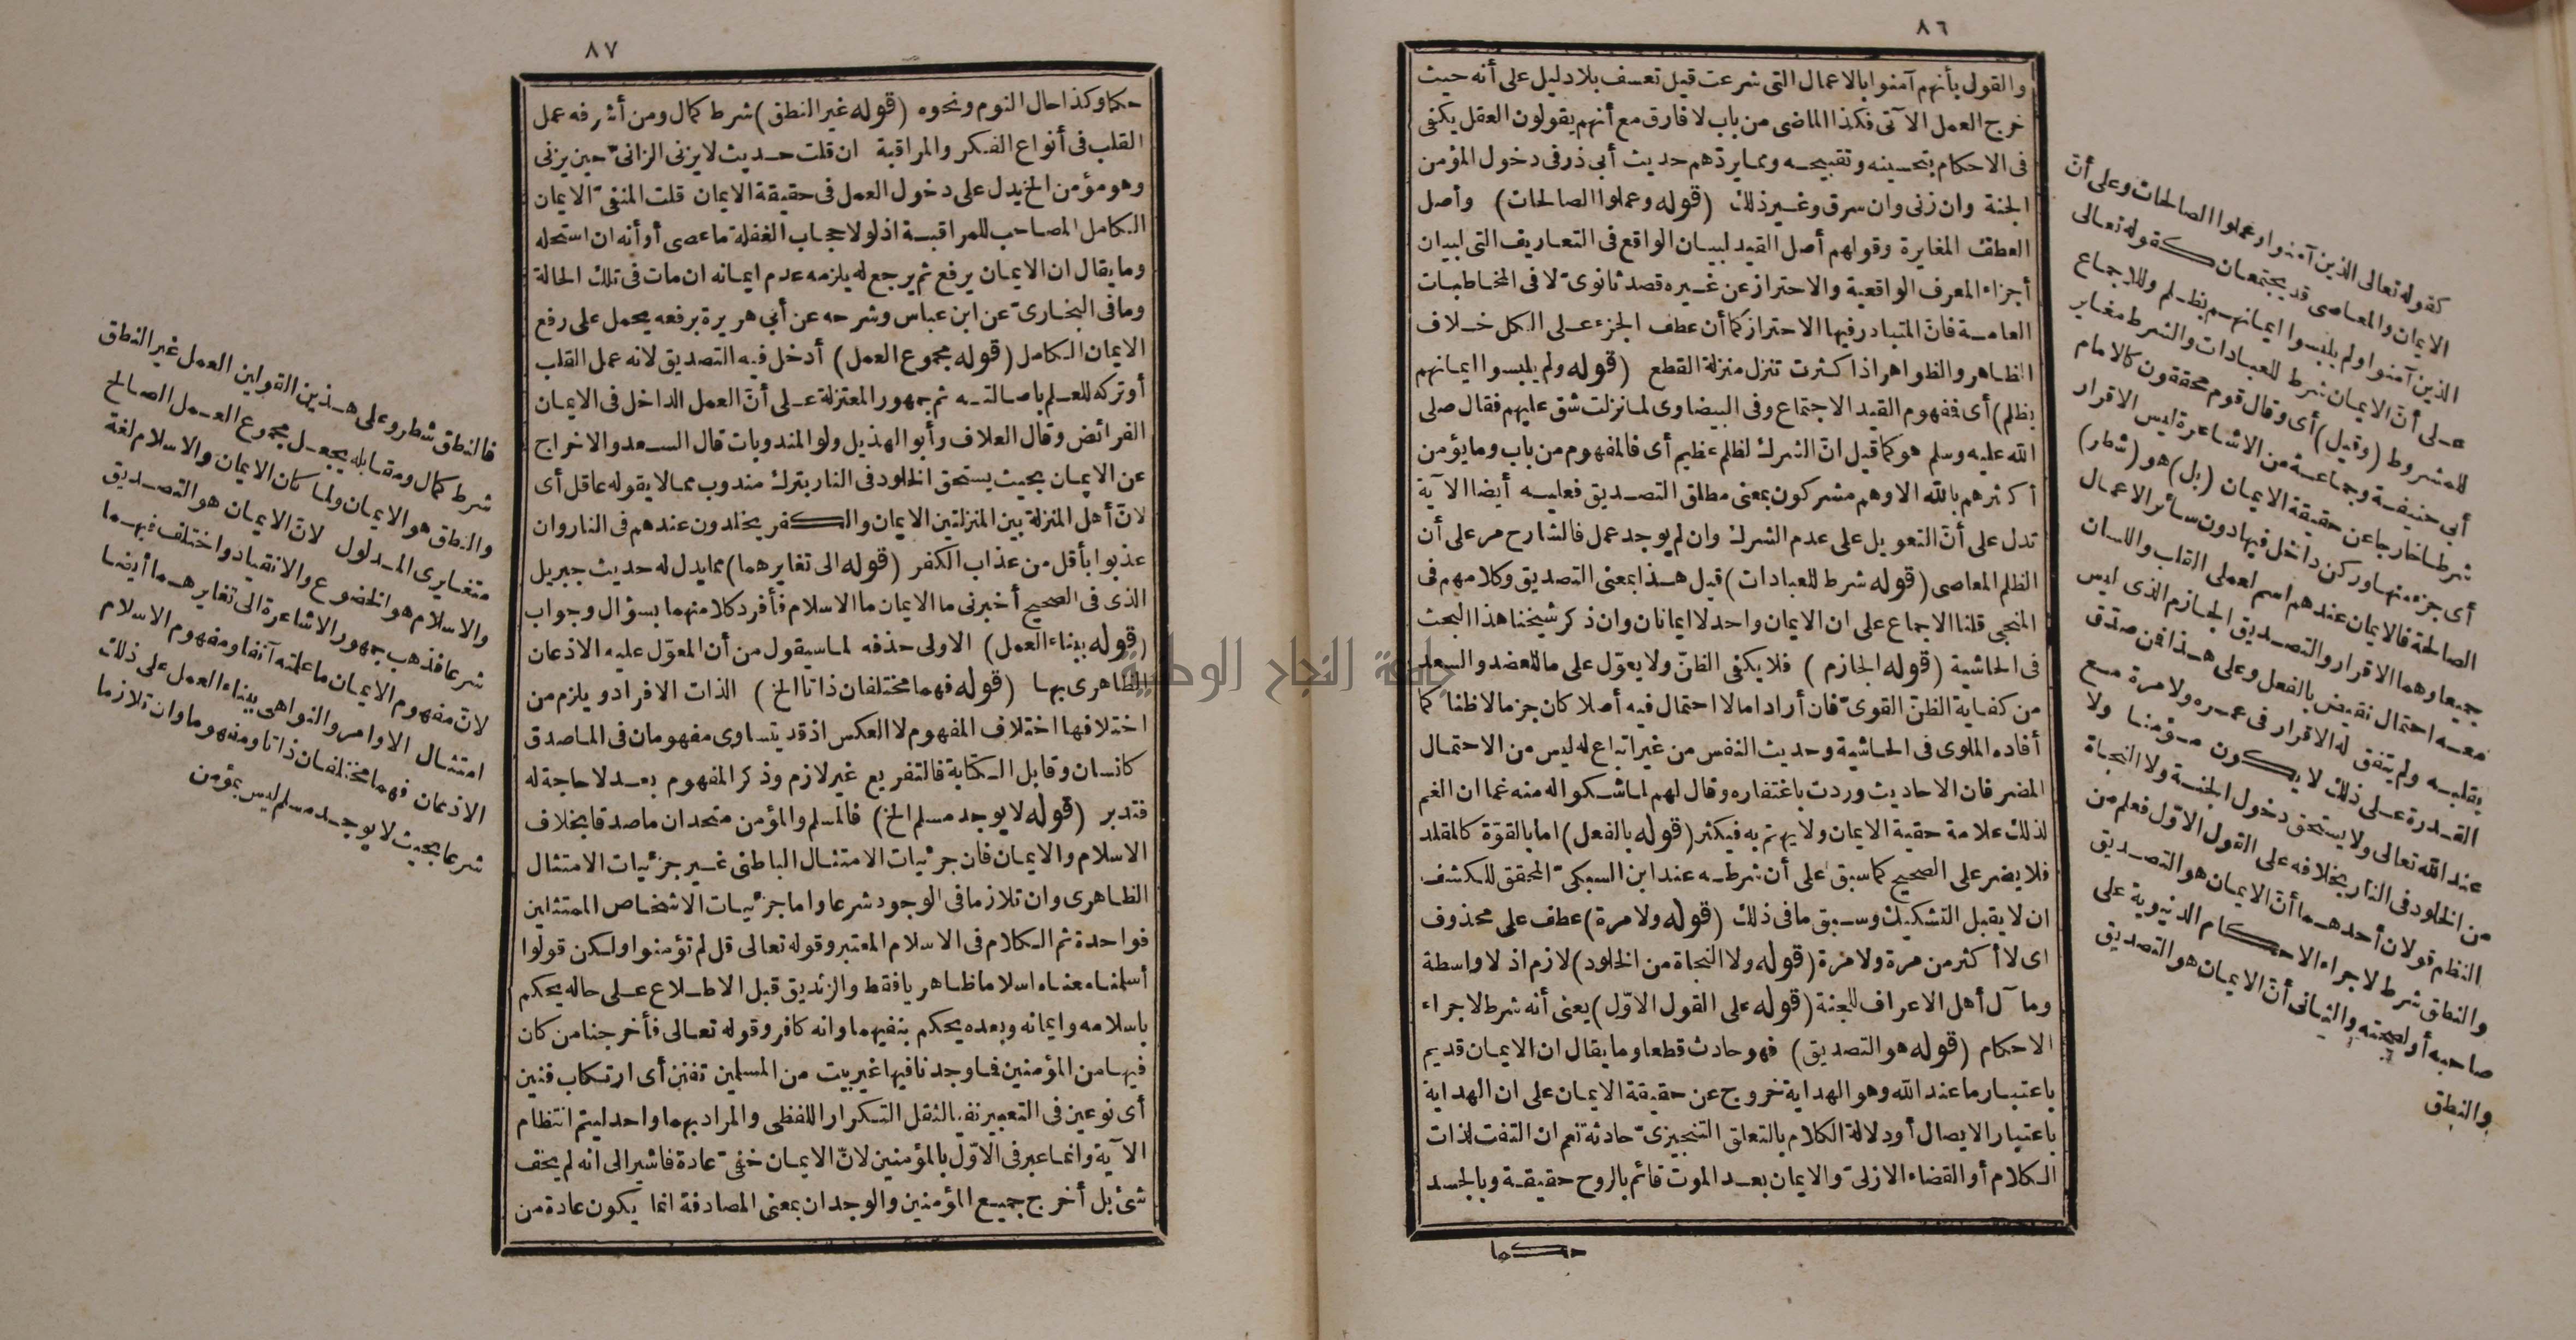 ٨٦
والقول بأنهم آمنوا بالاعمال التى شرعت قيل تعسف بلا دليل على أنه حيث
خرج العمل الآتى فكذا الماضى من باب لا فارق مع أنهم يقولون العقل يكفى
فى الاحكام بتحسينه وتقبيحه ومما يردّهم حديث أبى ذر فى دخول المؤمن
الجنة وان زنى وان سرق وغير ذلك (قوله وعملوا الصالحات) وأصل
العطف المغايرة وقولهم أصل القيد لبيان الواقع فى التعاريف التى لبيان
أجزاء المعرف الواقعية والاحتراز عن غيره قصد ثانوىّ لا فى المخاطبات
العامة فانّ المتبادر فيها الاحتراز كما أن عطف الجزء على الكل خلاف
الظاهر والظواهر اذا كثرت تنزل منزلة القطع (قوله ولم يلبسوا ايمانهم
بظلم) أى فمفهوم القيد الاجتماع وفى البيضاوى لما نزلت شق عليهم فقال صلى
الله عليه وسلم هو كما قيل انّ الشرك لظلم عظيم أى فالمفهوم من باب وما يؤمن
أكثرهم بالله الا وهم مشركون بمعنى مطلق التصديق فعليه أيضا الآية
تدل على أنّ التعويل على عدم الشرك وان لم يوجد عمل فالشارح مر على أن
الظلم المعاصى (قوله شرط للعبادات) قيل هذا بمعنى التصديق وكلامهم فى
المنجى قلنا الاجماع على ان الايمان واحد لا ايمانان وان ذكر شيخنا هذا البحث
فى الحاشية (قوله الجازم) فلا يكفى الظنّ ولا يعوّل على ما للعضد والسعد
من كفاية الظنّ القوىّ فان أرادا ما لا احتمال فيه أصلا كان جزما لا ظنا كما
أفاده الملوى فى الحاشية وحديث النفس من غير اتباع له ليس من الاحتمال
المضر فان الاحاديث وردت باغتفاره وقال لهم لما شكوا له منه غما ان الغم
لذلك علامة حقية الايمان ولا يهتم به فيكثر (قوله بالفعل) اما بالقوّة كالمقلد
فلا يضر على الصحيح كما سبق على أن شرطه عند ابن السبكىّ المحقق للكشف
ان لا يقبل التشكيك وسبق ما فى ذلك (قوله ولا مرة) عطف على محذوف
اى لا أكثر من مرة ولا مرة (قوله ولا النجاة من الخلود) لازم اذ لا واسطة
ومآل أهل الاعراف للجنة (قوله على القول الاوّل) يعنى أنه شرط لاجراء
الاحكام (قوله هو التصديق) فهو حادث قطعا وما يقال ان الايمان قديم
باعتبار ما عند الله وهو الهداية خروج عن حقيقة الايمان على ان الهداية
باعتبار الايصال أو دلالة الكلام بالتعلق التنجيزىّ حادثة نعم ان التفت لذات
الكلام أو القضاء الازلىّ والايمان بعد الموت قائم بالروح حقيقة وبالجسد
حكما
كقوله تعالى الذين آمنوا وعملوا الصالحات وعلى أنّ
الايمان والمعاصى قد يجتمعان كقوله تعالى
الذين آمنوا ولم يلبسوا ايمانهم بظلم وللاجماع
على أنّ الايمان شرط للعبادات والشرط مغاير
للمشروط (وقيل) أى وقال قوم محققون كالامام
أبى حنيفة وجماعة من الاشاعرة ليس الاقرار
شرطا خارجا عن حقيقة الايمان (بل) هو (شطر)
أى جزء منها وركن داخل فيها دون سائر الاعمال
الصالحة فالايمان عندهم اسم لعملى القلب واللسان
جميعا وهما الاقرار والتصديق الجازم الذى ليس
معه احتمال نقيض بالفعل وعلى هذا فمن صدّق
بقلبه ولم يتفق له الاقرار فى عمره ولا مرة مع
القدرة على ذلك لا يكون مؤمنا ولا
عند الله تعالى ولا يستحق دخول الجنة ولا النجاة
من الخلود فى النار بخلافه على القول الاوّل فعلم من
النظم قولان أحدهما أنّ الايمان هو التصديق
والنطق شرط لاجراء الاحكام الدنيوية على
صاحبه أو لصحته والثانى أنّ الايمان هو التصديق
والنطق
٨٧
حكما وكذا حال النوم ونحوه (قوله غير النطق) شرط كمال ومن أشرفه عمل
القلب فى أنواع الفكر والمراقبة ان قلت حديث لا يزنى الزانى حين يزنى
وهو مؤمن الخ يدل على دخول العمل فى حقيقة الايمان قلت المنفىّ الايمان
الكامل المصاحب للمراقبة اذ لولا حجاب الغفلة ما عصى أو أنه ان استحله
وما يقال ان الايمان يرفع ثم يرجع له يلزمه عدم ايمانه ان مات فى تلك الحالة
وما فى البخارىّ عن ابن عباس وشرحه عن أبى هريرة برفعه يحمل على رفع
الايمان الكامل (قوله مجموع العمل) أدخل فيه التصديق لانه عمل القلب
أو تركه للعلم باصالته ثم جمهور المعتزلة على أنّ العمل الداخل فى الايمان
الفرائض وقال العلاف وأبو الهذيل ولو المندوبات قال السعد والاخراج
عن الايمان بحيث يستحق الخلود فى النار بترك مندوب مما لا يقوله عاقل أى
لانّ أهل المنزلة بين المنزلتين الايمان والكفر يخلدون عندهم فى النار وان
عذبوا بأقل من عذاب الكفر (قوله الى تغايرهما) مما يدل له حديث جبريل
الذى فى الصحيح أخبرنى ما الايمان ما الاسلام فأفرد كلا منهما بسؤال وجواب
(قوله ببناء العمل) الاولى حذفه لما سيقول من أن المعوّل عليه الاذعان
الظاهرى بها (قوله فهما مختلفان ذاتا الخ) الذات الافراد ويلزم من
اختلافها اختلاف المفهوم لا العكس اذ قد يتساوى مفهومان فى الماصدق
كانسان وقابل الكتابة فالتفريع غير لازم وذكر المفهوم بعد لا حاجة له
فتدبر (قوله لا يوجد مسلم الخ) فالمسلم والمؤمن متحدان ماصدقا بخلاف
الاسلام والايمان فان جزئيات الامتثال الباطنى غير جزئيات الامتثال
الظاهرى وان تلازما فى الوجود شرعا واما جزئيات الاشخاص الممتثلين
فواحدة ثم الكلام فى الاسلام المعتبر وقوله تعالى قل لم تؤمنوا ولكن قولوا
أسلمنا معناه اسلاما ظاهريا فقط والزنديق قبل الاطلاع على حاله يحكم
باسلامه وايمانه وبعده يحكم بنفيهما وانه كافر وقوله تعالى فأخرجنا من كان
فيها من المؤمنين فما وجدنا فيها غير بيت من المسلمين تفنن أى ارتكاب فنين
أى نوعين فى التعبير نفيا لثقل التكرار اللفظى والمراد بهما واحد ليتم انتظام
الآية وانما عبر فى الاوّل بالمؤمنين لانّ الايمان خفىّ عادة فاشير الى انه لم يخف
شئ بل أخرج جميع المؤمنين والوجدان بمعنى المصادفة انما يكون عادة من
فالنطق شطر وعلى هذين القولين العمل غير النطق
شرط كمال ومقابله يجعل مجموع العمل الصالح
والنطق هو الايمان ولما كان الايمان والاسلام لغة
متغايرى المدلول لانّ الايمان هو التصديق
والاسلام هو الخضوع والانقياد واختلف فيهما
شرعا فذهب جمهور الاشاعرة الى تغايرهما أيضا
لانّ مفهوم الايمان ما علمته آنفا ومفهوم الاسلام
امتثال الاوامر والنواهى ببناء العمل على ذلك
الاذعان فهما مختلفان ذاتا ومفهوما وان تلازما
شرعا بحيث لا يوجد مسلم ليس بمؤمن
جامعة النجاح الوطنية